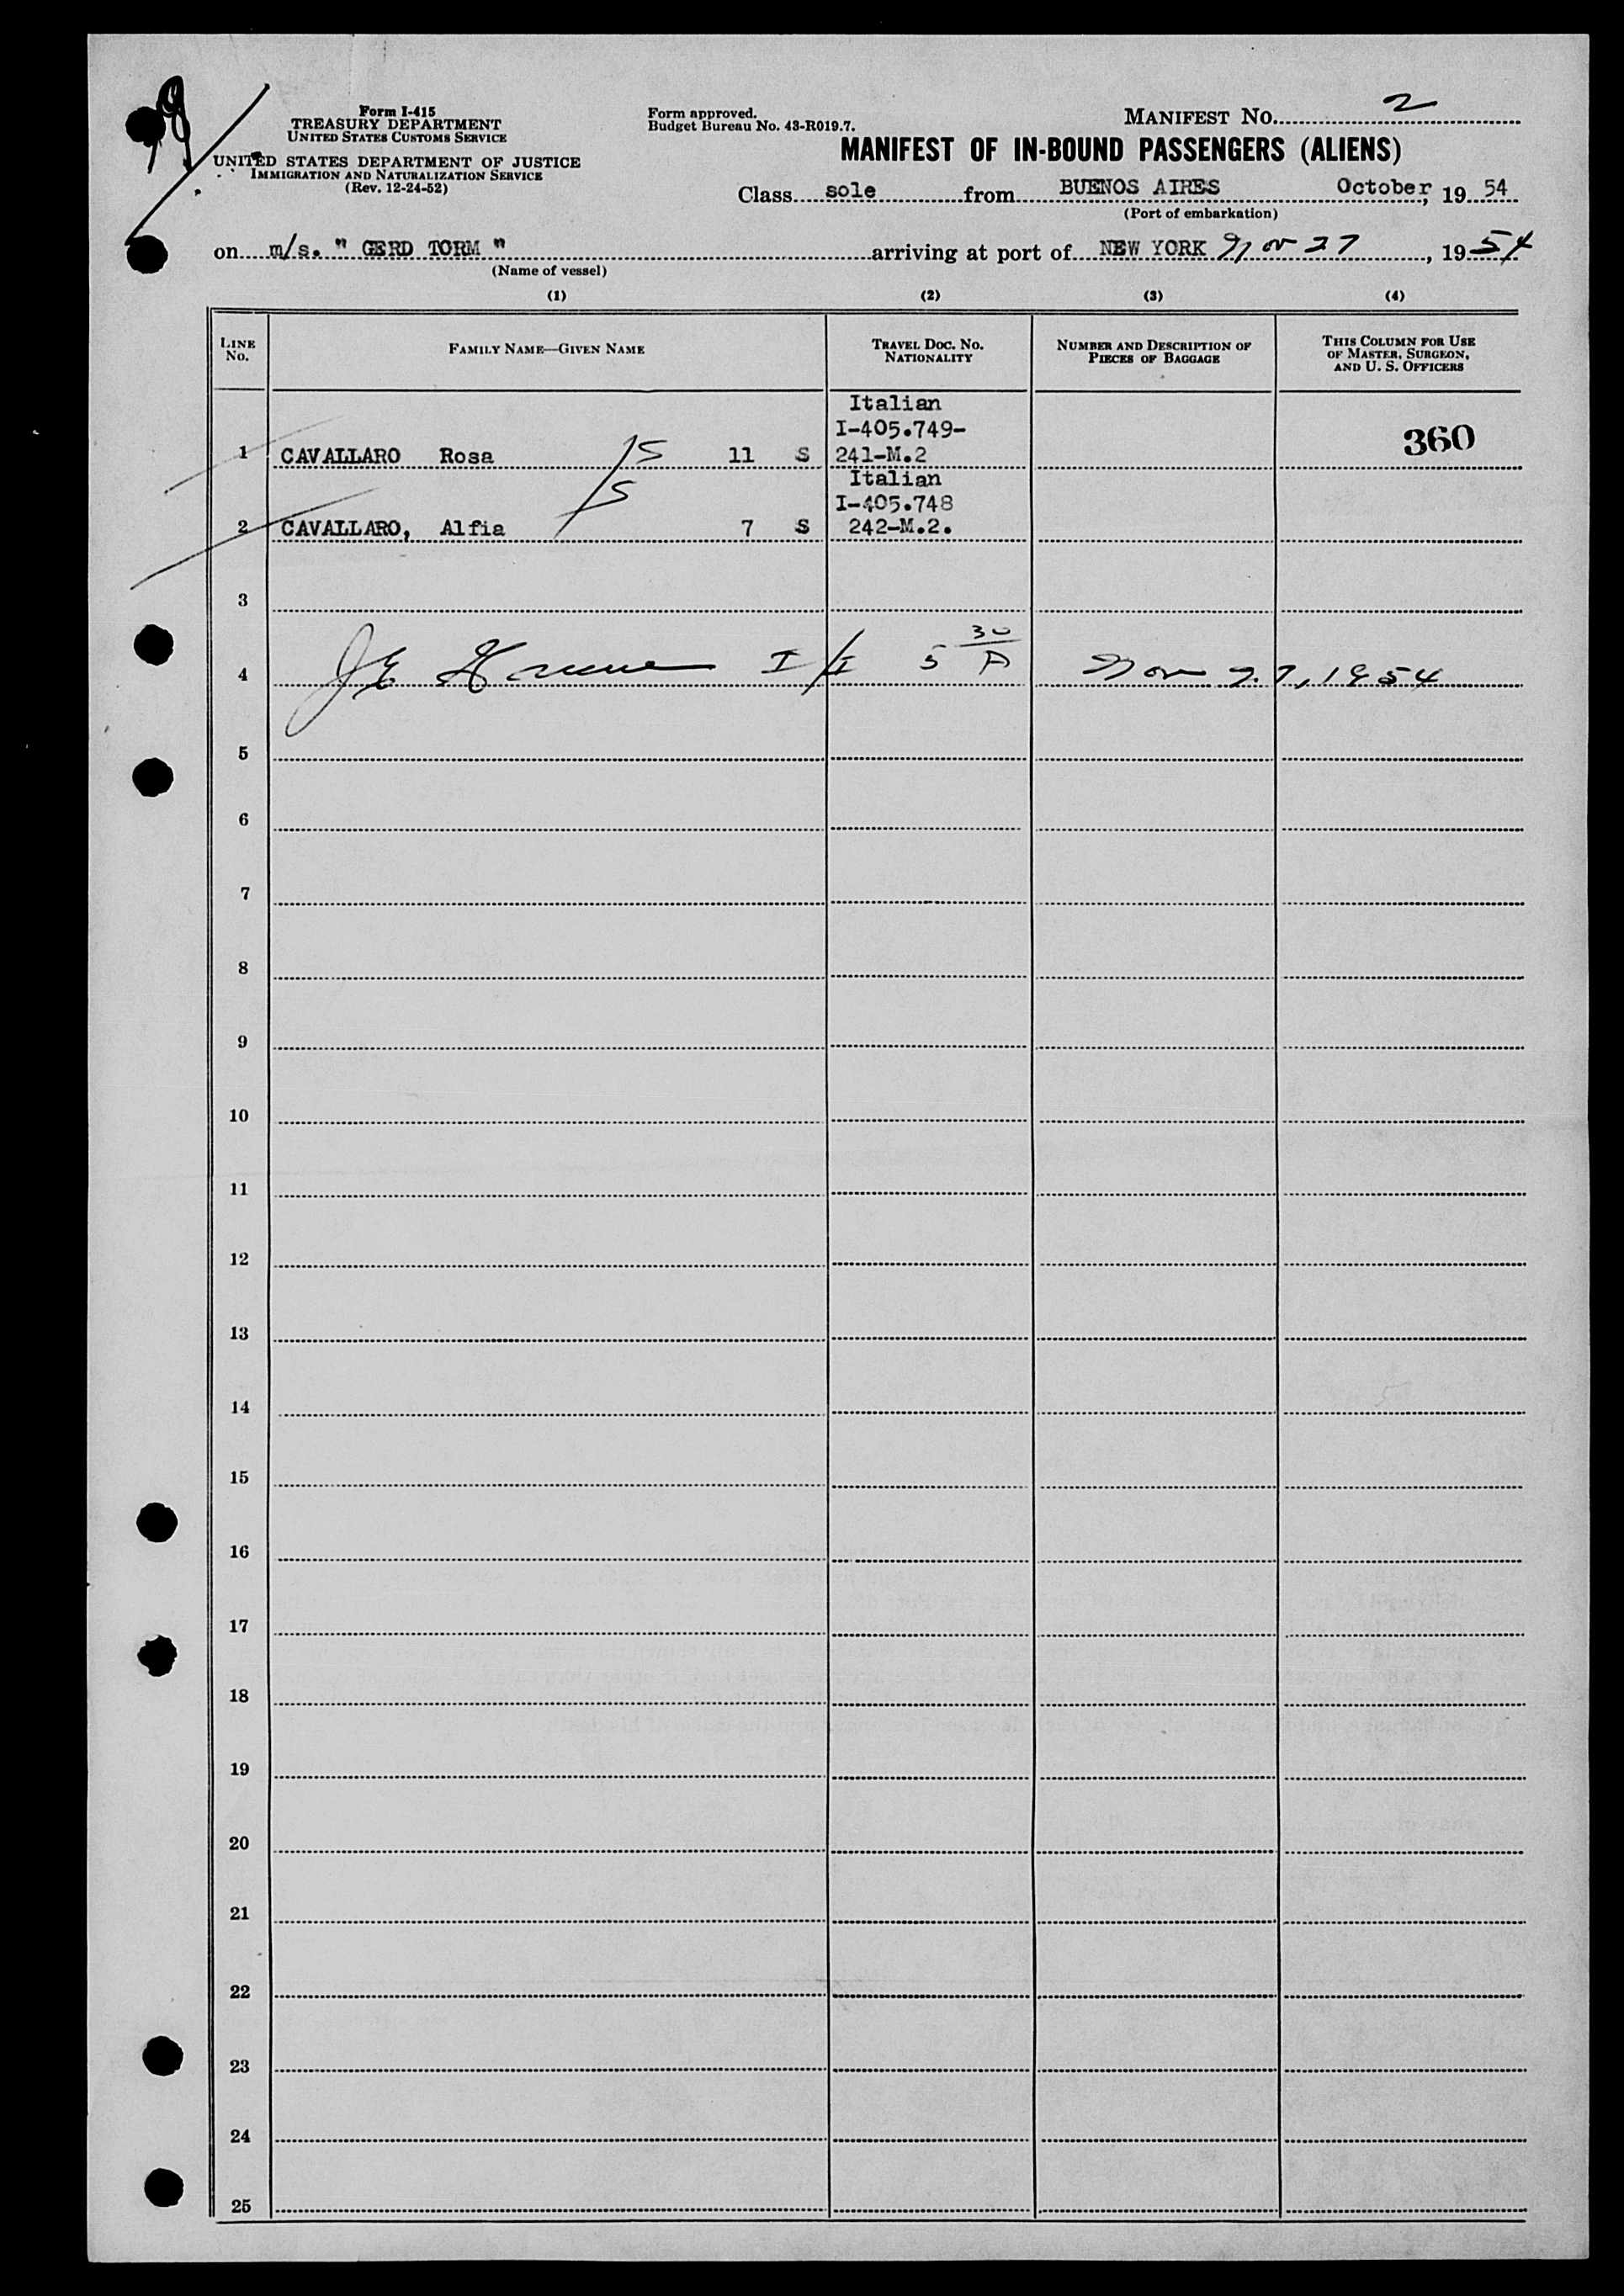 Form I-415
TREASURY DEPARTMENT
UNITED STATES CUSTOMS SERVICE
UNITED STATES DEPARTMENT OF JUSTICE
IMMIGRATION AND NATURALIZATION SERVICE
(Rev. 12-24-52)
Form approved.
Budget Bureau No. 43-R019.7.
MANIFEST NO. 2
MANIFEST OF IN-BOUND PASSENGERS (ALIENS)
Class sole from BUENOS AIRES October, 19 54
(Port of embarkation)
on m/s. " GERD TORM " arriving at port of NEW YORK Nov 27, 1954
(Name of vessel)
(1) (2) (3) (4)
LINE NO. FAMILY NAME—GIVEN NAME TRAVEL DOC. NO. NATIONALITY NUMBER AND DESCRIPTION OF PIECES OF BAGGAGE THIS COLUMN FOR USE OF MASTER, SURGEON, AND U. S. OFFICERS
Italian
I-405.749-
1 CAVALLARO Rosa 11 S 241-M.2 360
Italian
I-405.748
2 CAVALLARO, Alfia 7 S 242-M.2.
3
4 I/I 5 30/A Nov 27, 1954
5
6
7
8
9
10
11
12
13
14
15
16
17
18
19
20
21
22
23
24
25